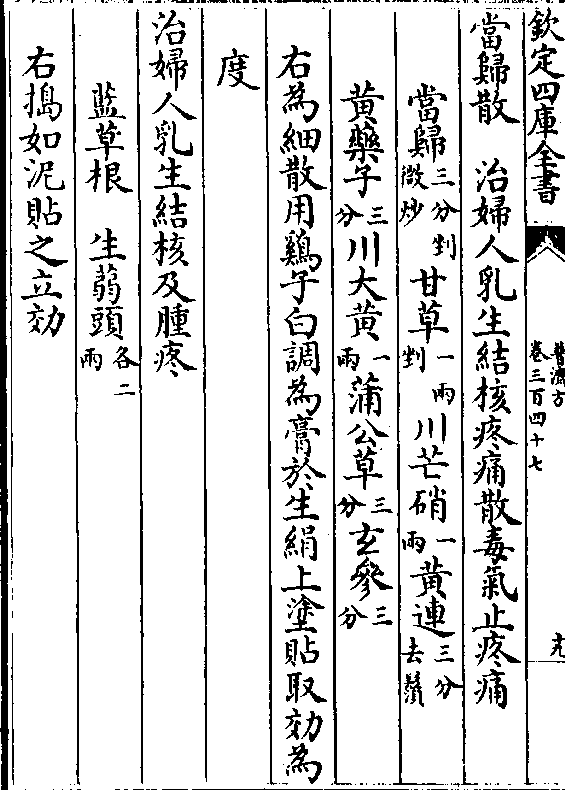 欽定四庫全書
普濟方
卷三百四十七
當歸散　治婦人乳生結核疼痛散毒氣止疼痛
當歸三分剉微炒甘草一兩剉川芒硝一兩黃連三分去鬚
黃藥子三分川大黃一兩蒲公草三分玄參三分
右為細散用鷄子白調為膏於生絹上塗貼取効為
度
治婦人乳生結核及腫疼
藍草根　生蒻頭各二兩
右搗如泥貼之立効